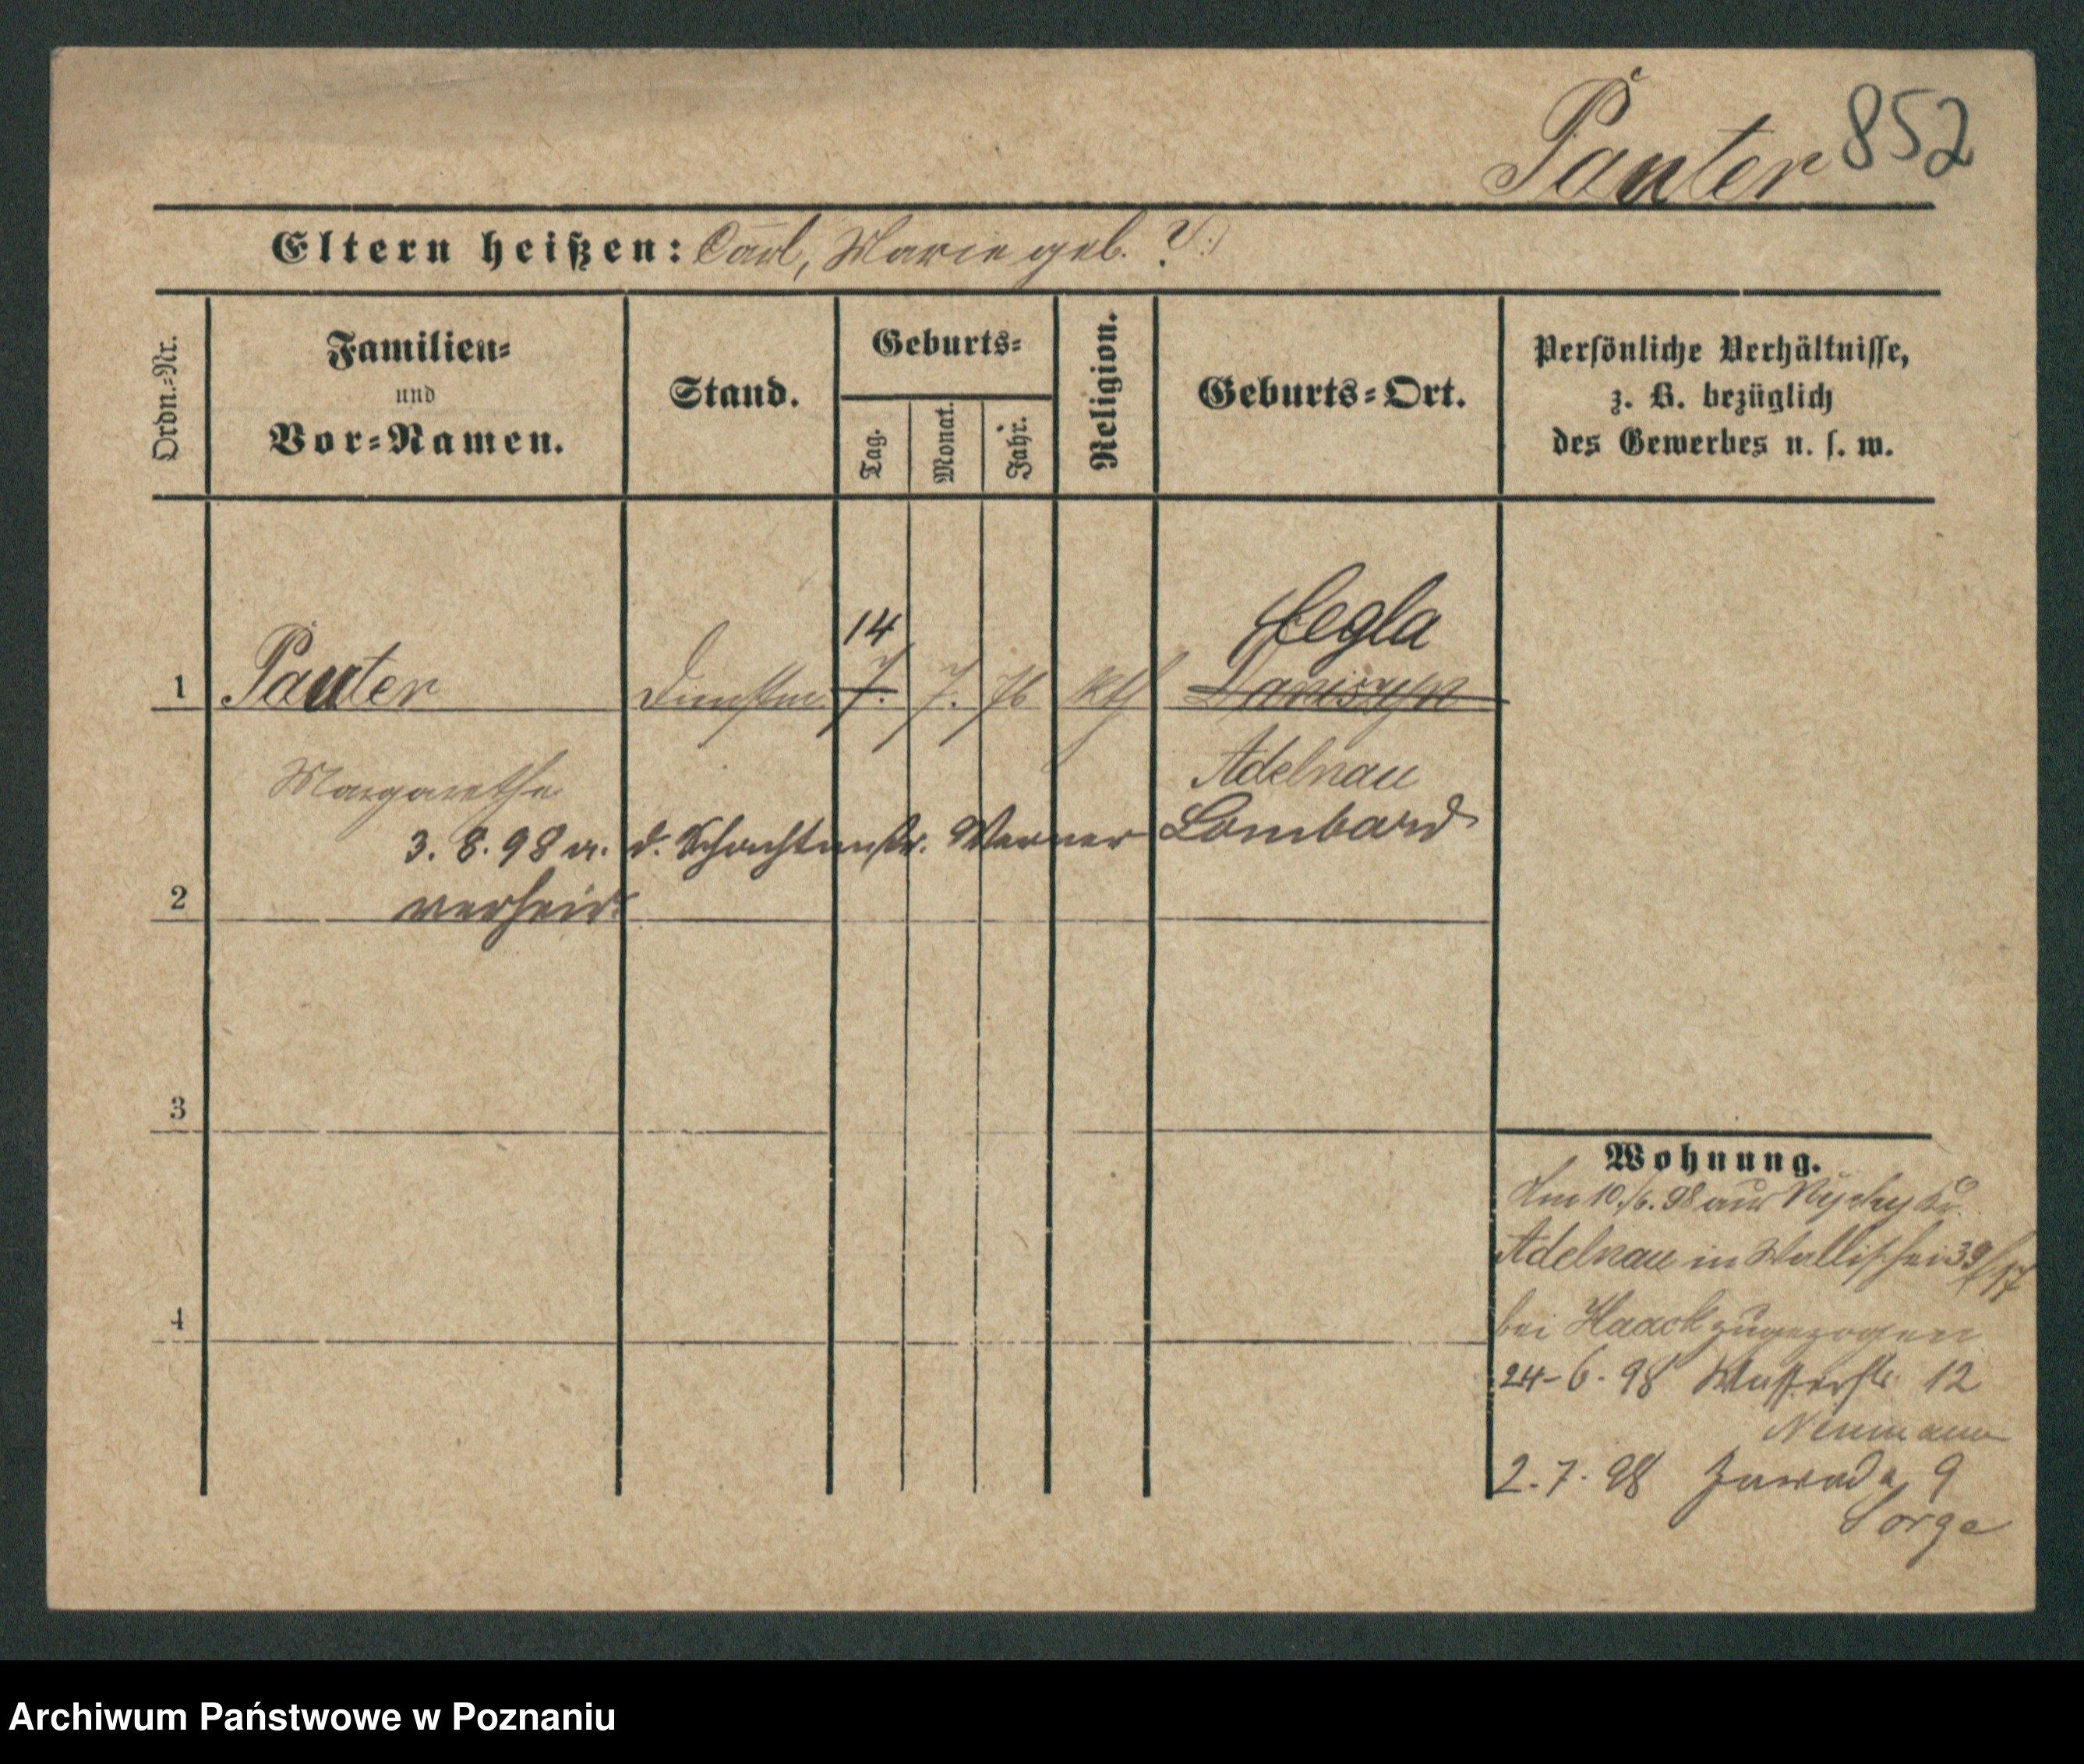 Panter 852
Eltern heißen: Carl, Marie geb. ?
Ordn.-Nr.
Familien-
und
Vor-Namen.
Stand.
Geburts-
Tag.
Monat.
Jahr.
Religion.
Geburts-Ort.
Persönliche Verhältnisse,
z. B. bezüglich
des Gewerbes u. s. w.
1 Panter 14 7. 7. 76 kth Cegla
Daniszyn
Margarethe Adelnau
3. 8. 98 m. d. Schachtmstr. Werner Lombard
2 verheir.
3
4
Wohnung.
Am 10./6. 98 aus
Adelnau in Wallischei 39/17
bei Haack zugezogen
24-6-98 Wasserstr. 12
Neumann
2.7.98 Zawade 9
Sorge
Archiwum Państwowe w Poznaniu